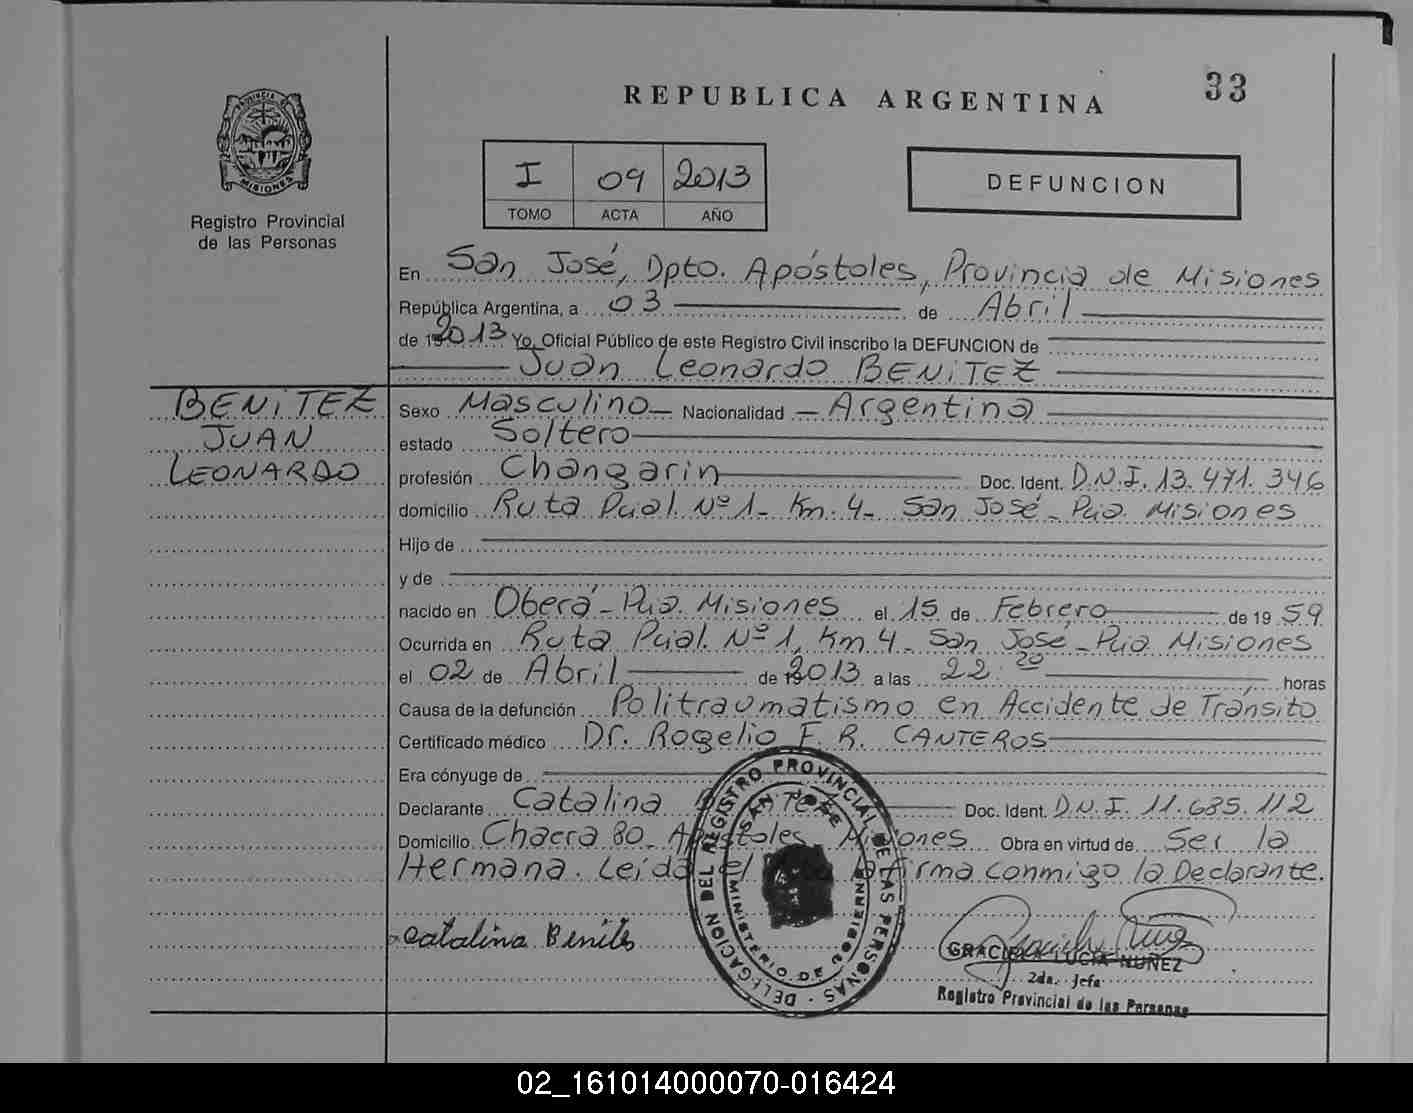 REPUBLICA ARGENTINA
33
PROVINCIA DE MISIONES
Registro Provincial
de las Personas
I 09 2013
TOMO ACTA AÑO
DEFUNCION
En San José, Dpto. Apóstoles, Provincia de Misiones
República Argentina, a 03 de Abril
de 2013 Yo, Oficial Público de este Registro Civil inscribo la DEFUNCION de
Juan Leonardo BENITEZ
BENITEZ
JUAN
LEONARDO
Sexo Masculino Nacionalidad Argentina
estado Soltero
profesión Changarin Doc. Ident. D.N.I. 13.471.346
domicilio Ruta Pcial. Nº 1 - Km. 4 - San José - Pcia. Misiones
Hijo de
y de
nacido en Oberá - Pcia. Misiones el 15 de Febrero de 19 59
Ocurrida en Ruta Pcial. Nº 1, Km 4 - San José - Pcia Misiones
el 02 de Abril de 2013 a las 22:20 horas
Causa de la defunción Politraumatismo en Accidente de Tránsito
Certificado médico Dr. Rogelio F. R. CANTEROS
Era cónyuge de
Declarante Catalina Doc. Ident. D.N.I. 11.635.112
Domicilio Chacra 80 - Apóstoles Misiones Obra en virtud de Ser la
Hermana. Leída el firma conmigo la Declarante.
Catalina Benites
DELEGACION DEL REGISTRO PROVINCIAL DE LAS PERSONAS
SAN JOSE
MINISTERIO DE GOBIERNO
GRACIELA LUCIA NUÑEZ
2da. Jefa
Registro Provincial de las Personas
02_161014000070-016424